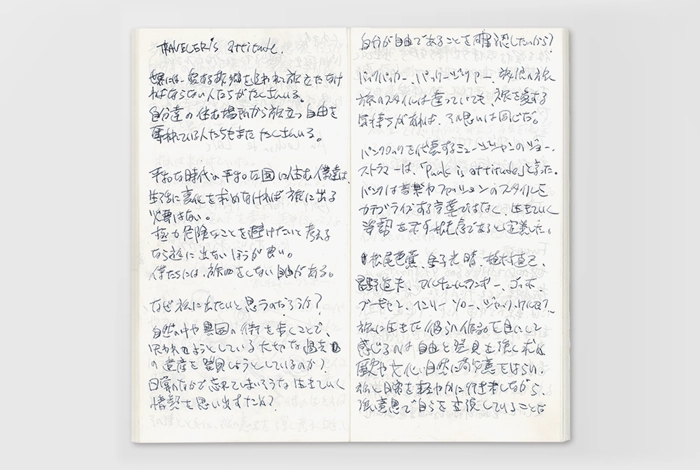 TRAVELER'S attitude.
世界には、愛する故郷を追われて旅立たなけ
ればならない人たちがたくさんいる。
自分達の住む場所から旅立つ自由を
奪われている人たちもまたたくさんいる。
平和な時代の平和な国に住む僕達は、
生活に変化を求めなければ旅に出る
必要はない。
極力危険なことを避けたいと考える
なら逆に出ないほうが良い。
僕たちには、旅をしない自由がある。
なぜ旅に出たいと思うのだろうか?
自然の中や異国の街を歩くことで、
失われようとしている大切な過去
の遺産を発見しようとしているのか?
日常のなかで忘れてしまいそうな生きていく
姿勢を思い出すため?
自分が自由であることを確認したいから?
バックパッカー、パッケージツアー、旅
旅のスタイルは違っていても、旅を愛する
気持ちがあれば、その思いは同じだ。
パンクロックを代表するミュージシャンのジョー・
ストラマーは、「Punk is attitude」と言った。
パンクは音楽やファッションのスタイルを
カテゴライズする言葉ではなく、生きていく
姿勢を示す概念であると定義した。
松尾芭蕉、金子光晴、植村直己、
星野道夫、ゴッホ、
ゴーギャン、ヘンリー・ソロー、ジャック・ケルアック。
旅に生きた彼らの作品を目にして
感じるのは自由と発見を強く求め
歴史や文化、自然に敬意をはらい、
旅と日常を軽やかに行き来しながら、
強い意思で自らを表現していることだ